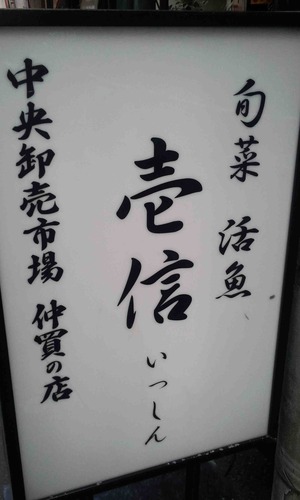 旬菜 活魚
壱信
いっしん
中央卸売市場 仲買の店